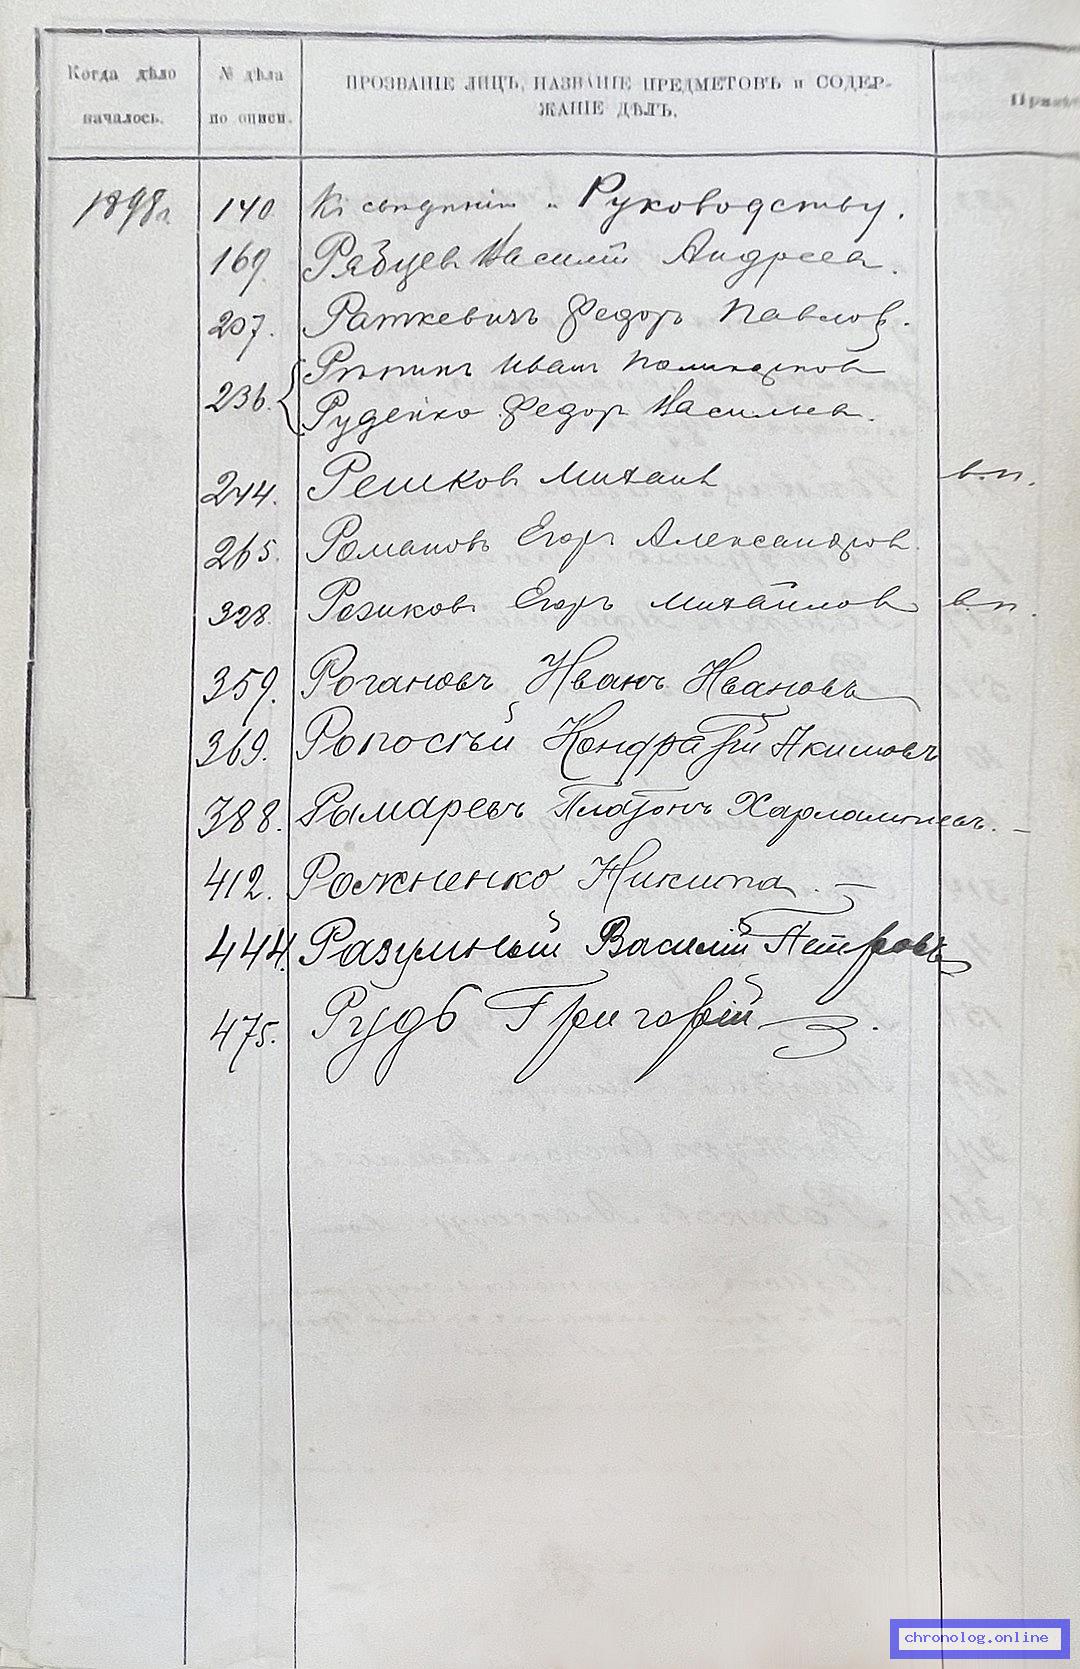 Когда дѣло началось.
№ дѣла по описи.
ПРОЗВАНІЕ ЛИЦЪ, НАЗВАНІЕ ПРЕДМЕТОВЪ и СОДЕР-
ЖАНІЕ ДѢЛЪ.
1898 г. 140 Къ свѣдѣнію и Руководству.
169. Рябцев Василій Андреев.
207. Раткевичъ Федоръ Павлов.
236. Иван
Руденко Федор Васильев.
244. Решков Михаил в.п.
265. Романовъ Егоръ Александров.
328. Розиковъ Егоръ Михайлов в.п.
359. Рогановъ Иванъ Ивановъ
369. Кондратій Якимовъ
388. Рымаревъ Платонъ Харлампиевъ. —
412. Рожненко Никита. —
444. Разумный Василій Петровъ
475. Рудь Григорій.
chronolog.online